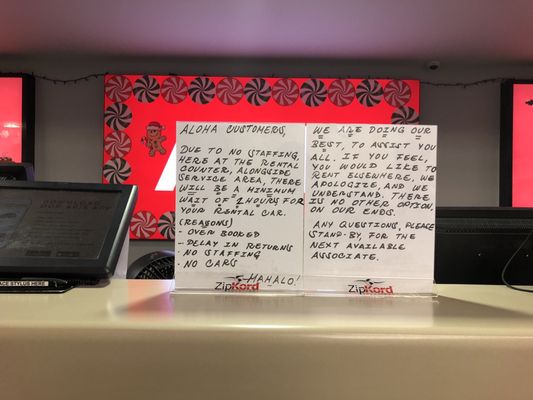 ALOHA CUSTOMERS,
DUE TO NO STAFFING,
HERE AT THE RENTAL
COUNTER, ALONGSIDE
SERVICE AREA, THERE
WILL BE A MINIMUM
WAIT OF 2 HOURS FOR
YOUR RENTAL CAR.
(REASONS)
- OVER BOOKED
- DELAY IN RETURNS
- NO STAFFING
- NO CARS
MAHALO!
ZipKord
WE ARE DOING OUR
BEST, TO ASSIST YOU
ALL. IF YOU FEEL,
YOU WOULD LIKE TO
RENT ELSEWHERE, WE
APOLOGIZE, AND WE
UNDERSTAND. THERE
IS NO OTHER OPTION,
ON OUR ENDS.
ANY QUESTIONS, PLEASE
STAND-BY, FOR THE
NEXT AVAILABLE
ASSOCIATE.
ZipKord
ACE STYLUS HERE